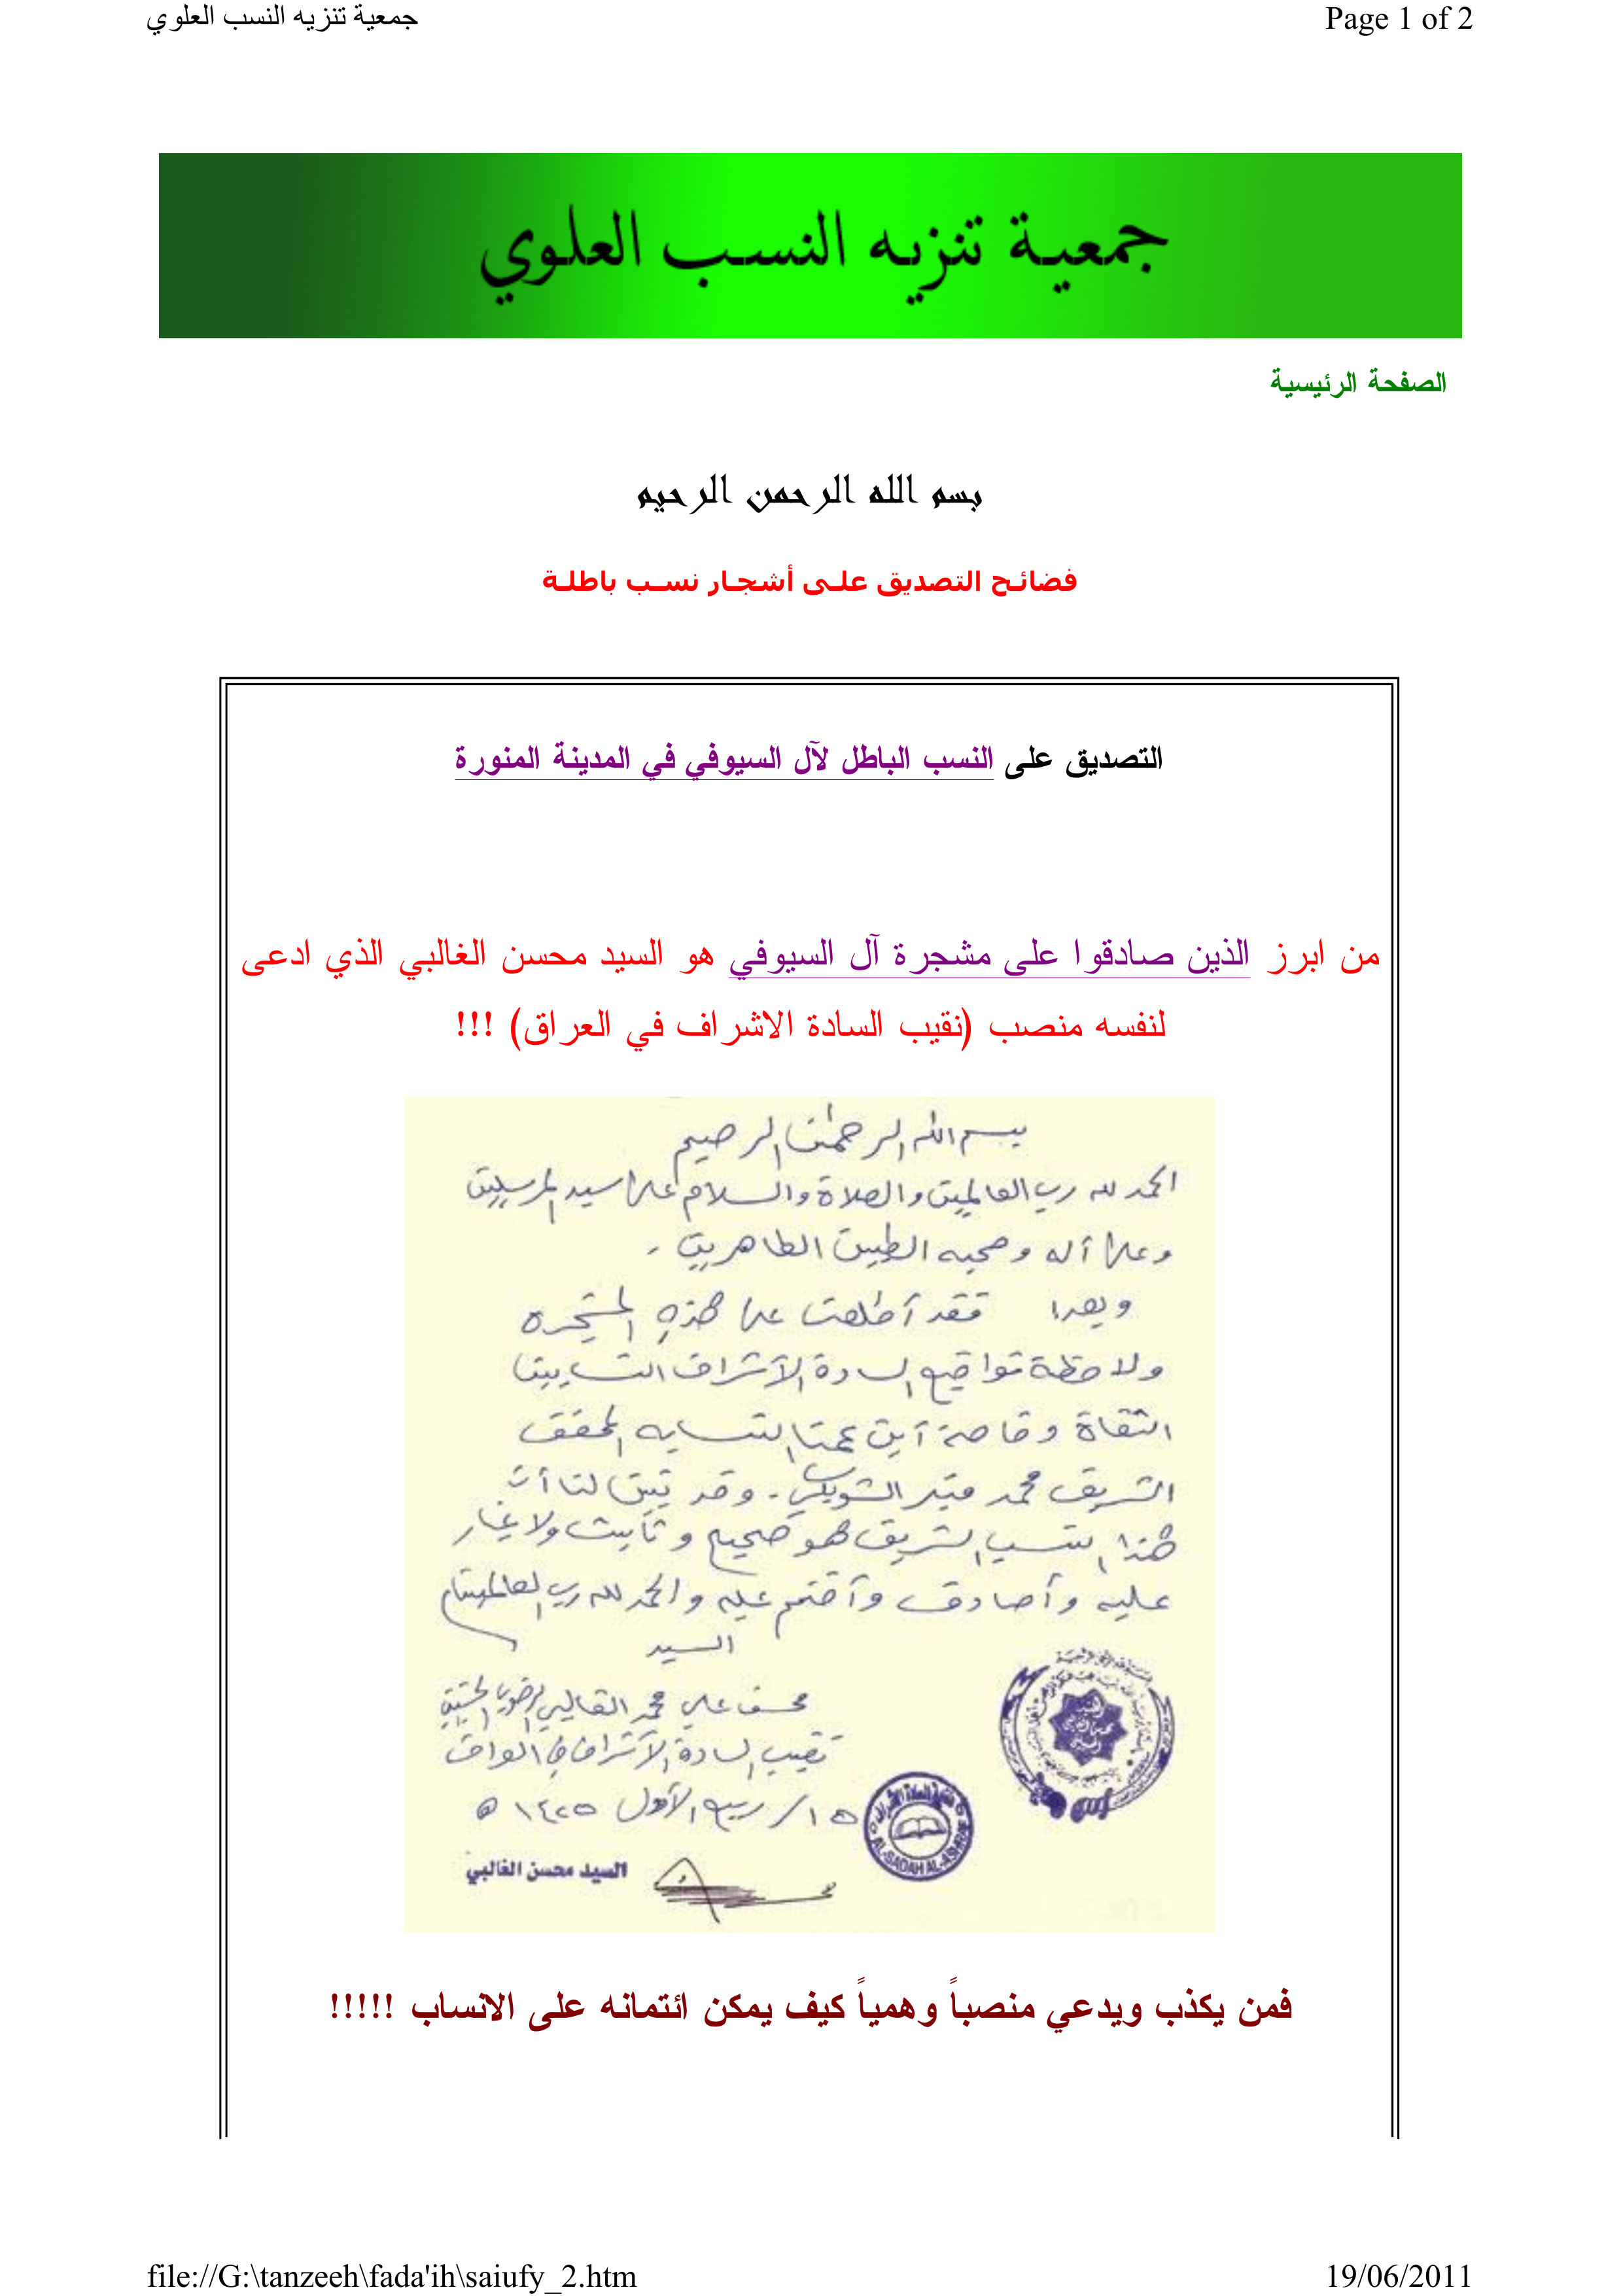 جمعية تنزيه النسب العلوي
Page 1 of 2
جمعية تنزيه النسب العلوي
الصفحة الرئيسية
بسم الله الرحمن الرحيم
فضائح التصديق على أشجار نسب باطلة
التصديق على النسب الباطل لآل السيوفي في المدينة المنورة
من ابرز الذين صادقوا على مشجرة آل السيوفي هو السيد محسن الغالبي الذي ادعى
لنفسه منصب (نقيب السادة الاشراف في العراق) !!!
بسم الله الرحمن الرحيم
الحمد لله رب العالمين والصلاة والسلام على سيد المرسلين
وعلى آله وصحبه الطيبين الطاهرين .
وبعد فقد أطلعت على هذه المشجرة
ولاحظة تواقيع السادة الأشراف النسابين
الثقاة وخاصة أبن عمنا النسابه المحقق
الشريف محمد منير الشويكي . وقد تبين لنا أن
هذا النسب الشريف هو صحيح وثابت ولا غبار
عليه وأصادق وأختم عليه والحمد لله رب العالمين
السيد
محسن علي محمد الغالبي الرضوي الحسيني
نقيب السادة الأشراف في العراق
١٥/ ربيع الأول ١٤٢٥ ه
AL-SADAH AL-ASHRAF
السيد محسن الغالبي
فمن يكذب ويدعي منصباً وهمياً كيف يمكن ائتمانه على الانساب !!!!!
file://G:\tanzeeh\fada'ih\saiufy_2.htm
19/06/2011